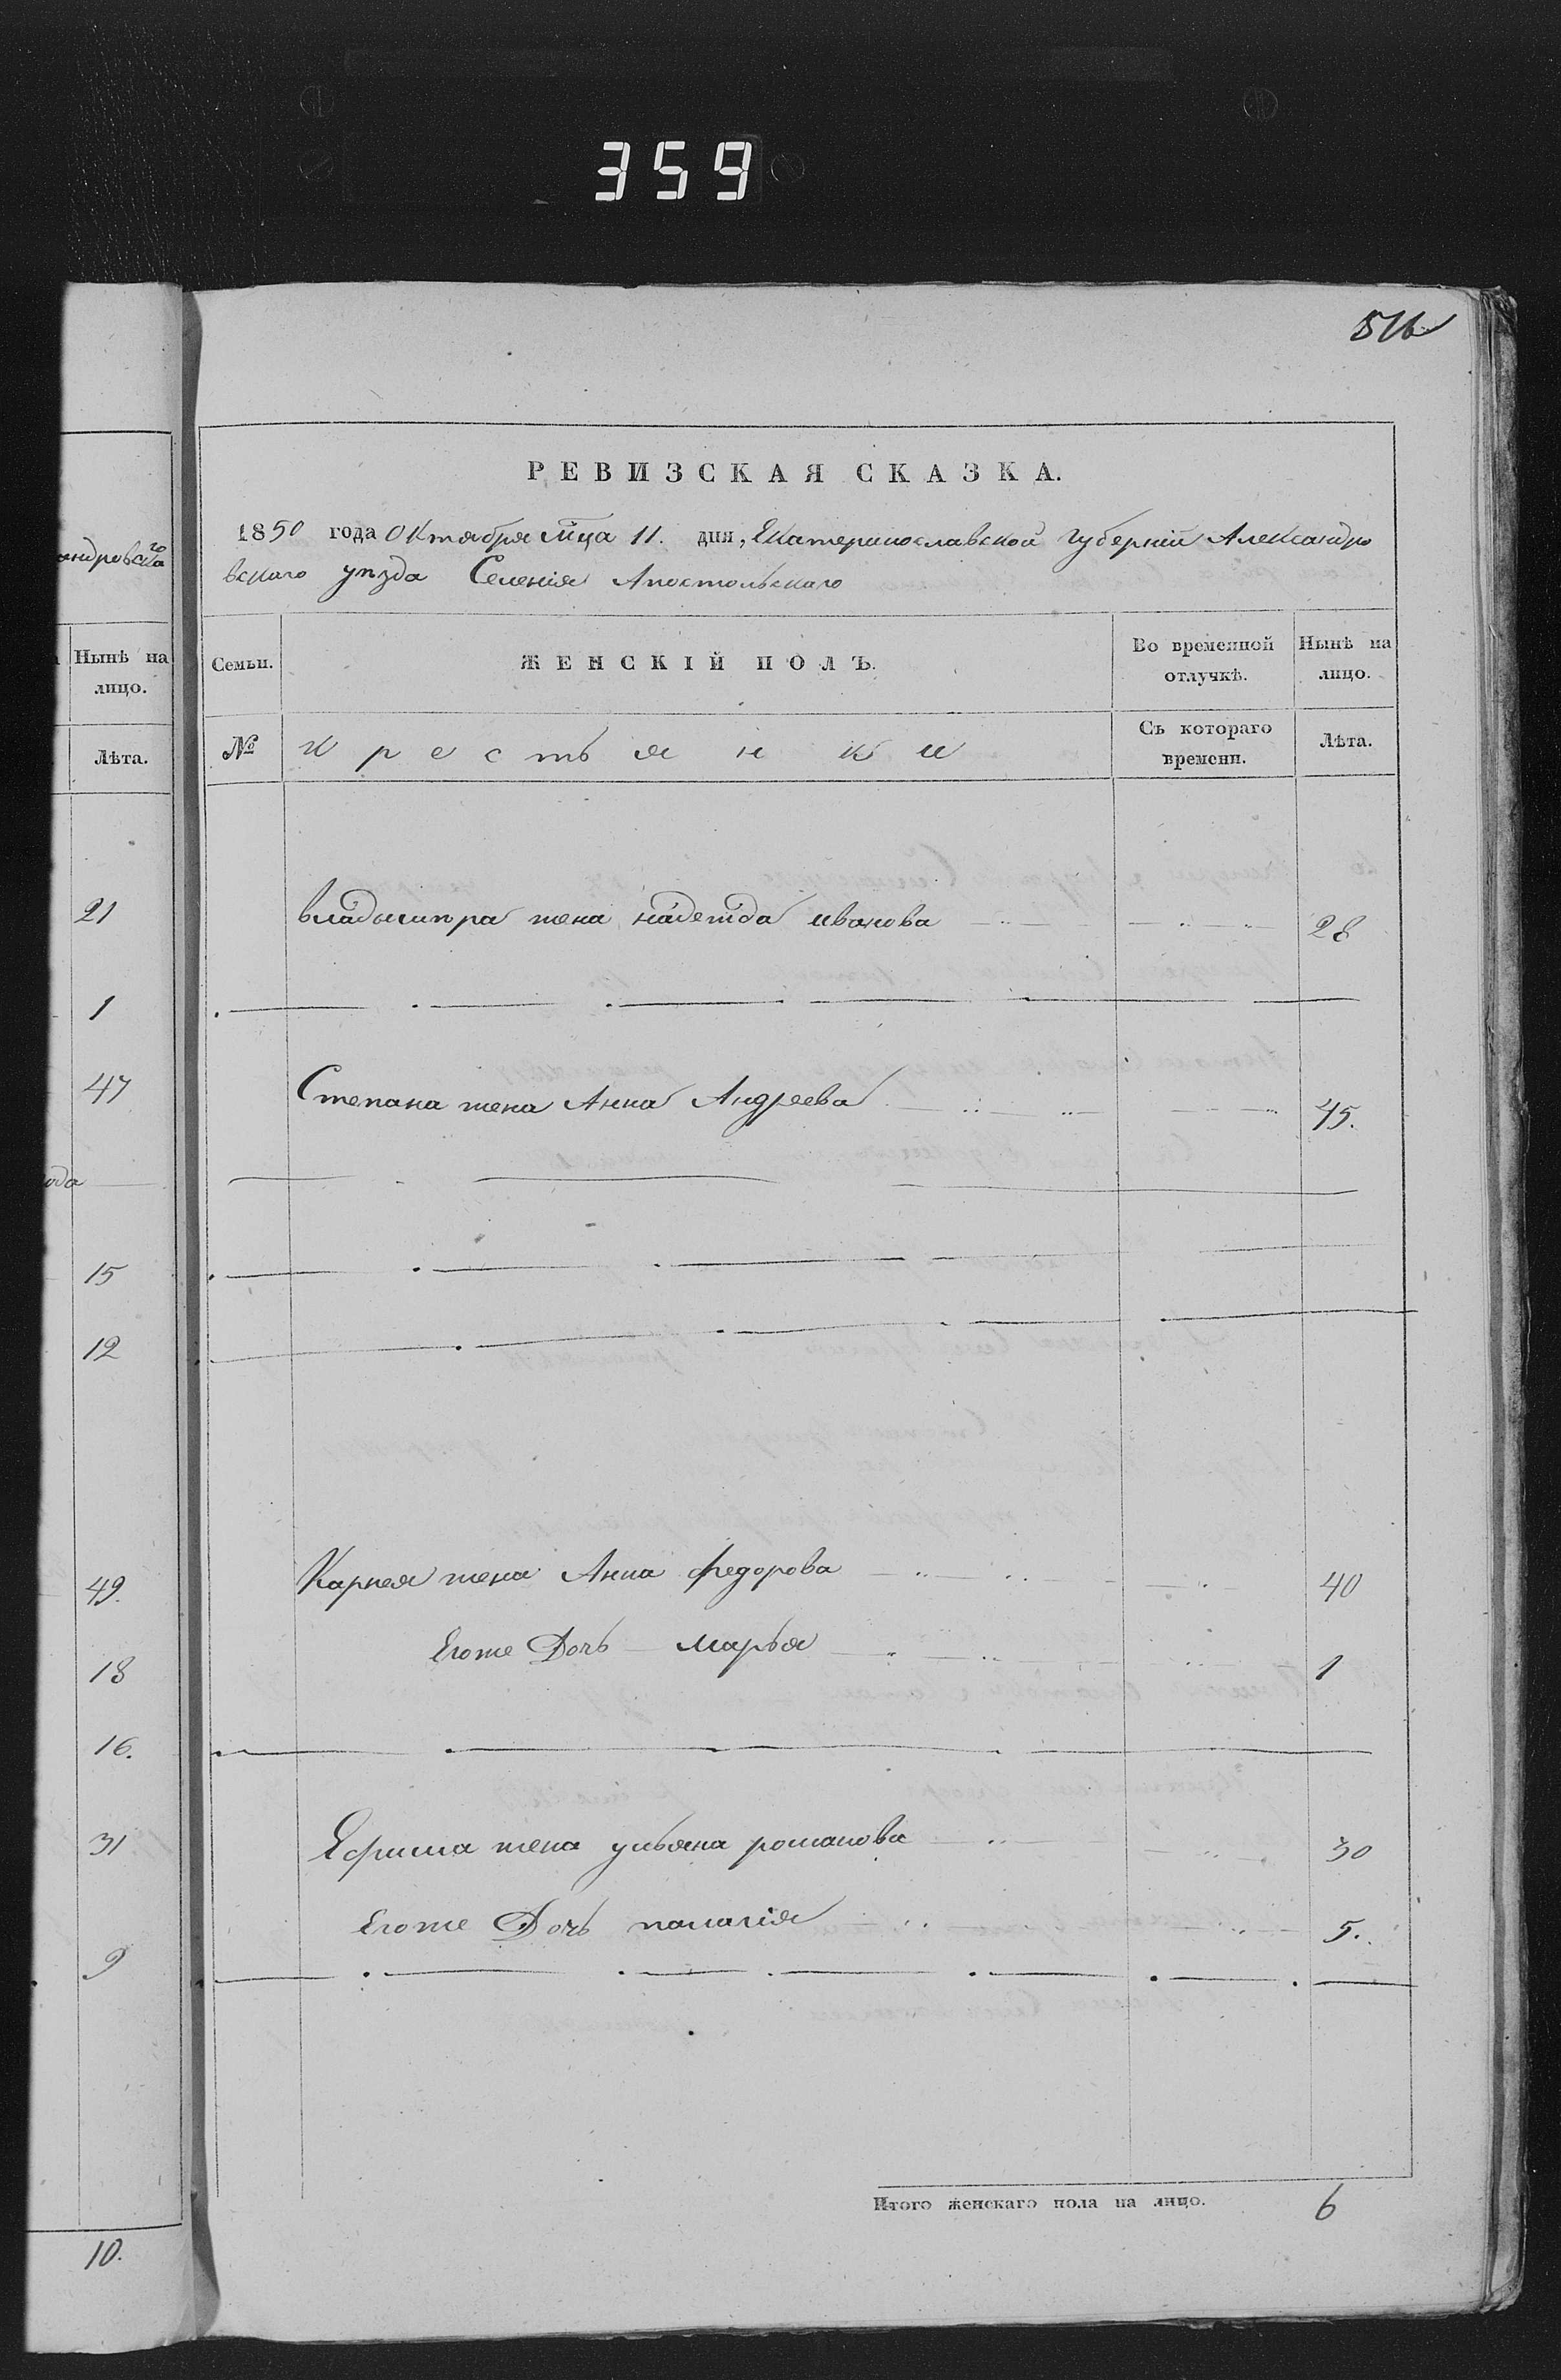 359
516
РЕВИЗСКАЯ СКАЗКА.
1850 года Октября мца 11. дня, Екатеринославской губернии Александро
вскаго уезда Селения Апостольскаго
андровскаго
Нынѣ на лицо.
Лѣта.
Семьи.
ЖЕНСКІЙ ПОЛЪ.
Во временной отлучкѣ.
Нынѣ на лицо.
№
крестьянки
Съ котораго времени.
Лѣта.
21
владымира жена надежда иванова 28
1
47
Степана жена Анна Андреева 45.
ода
15
12
49.
Карнея жена Анна федорова 40
18
Егоже Дочь Марья 1
16.
31
Ефима жена ульяна романова 30
Егоже Дочь палагія 5.
9
Итого женскаго пола на лицо. 6
10.